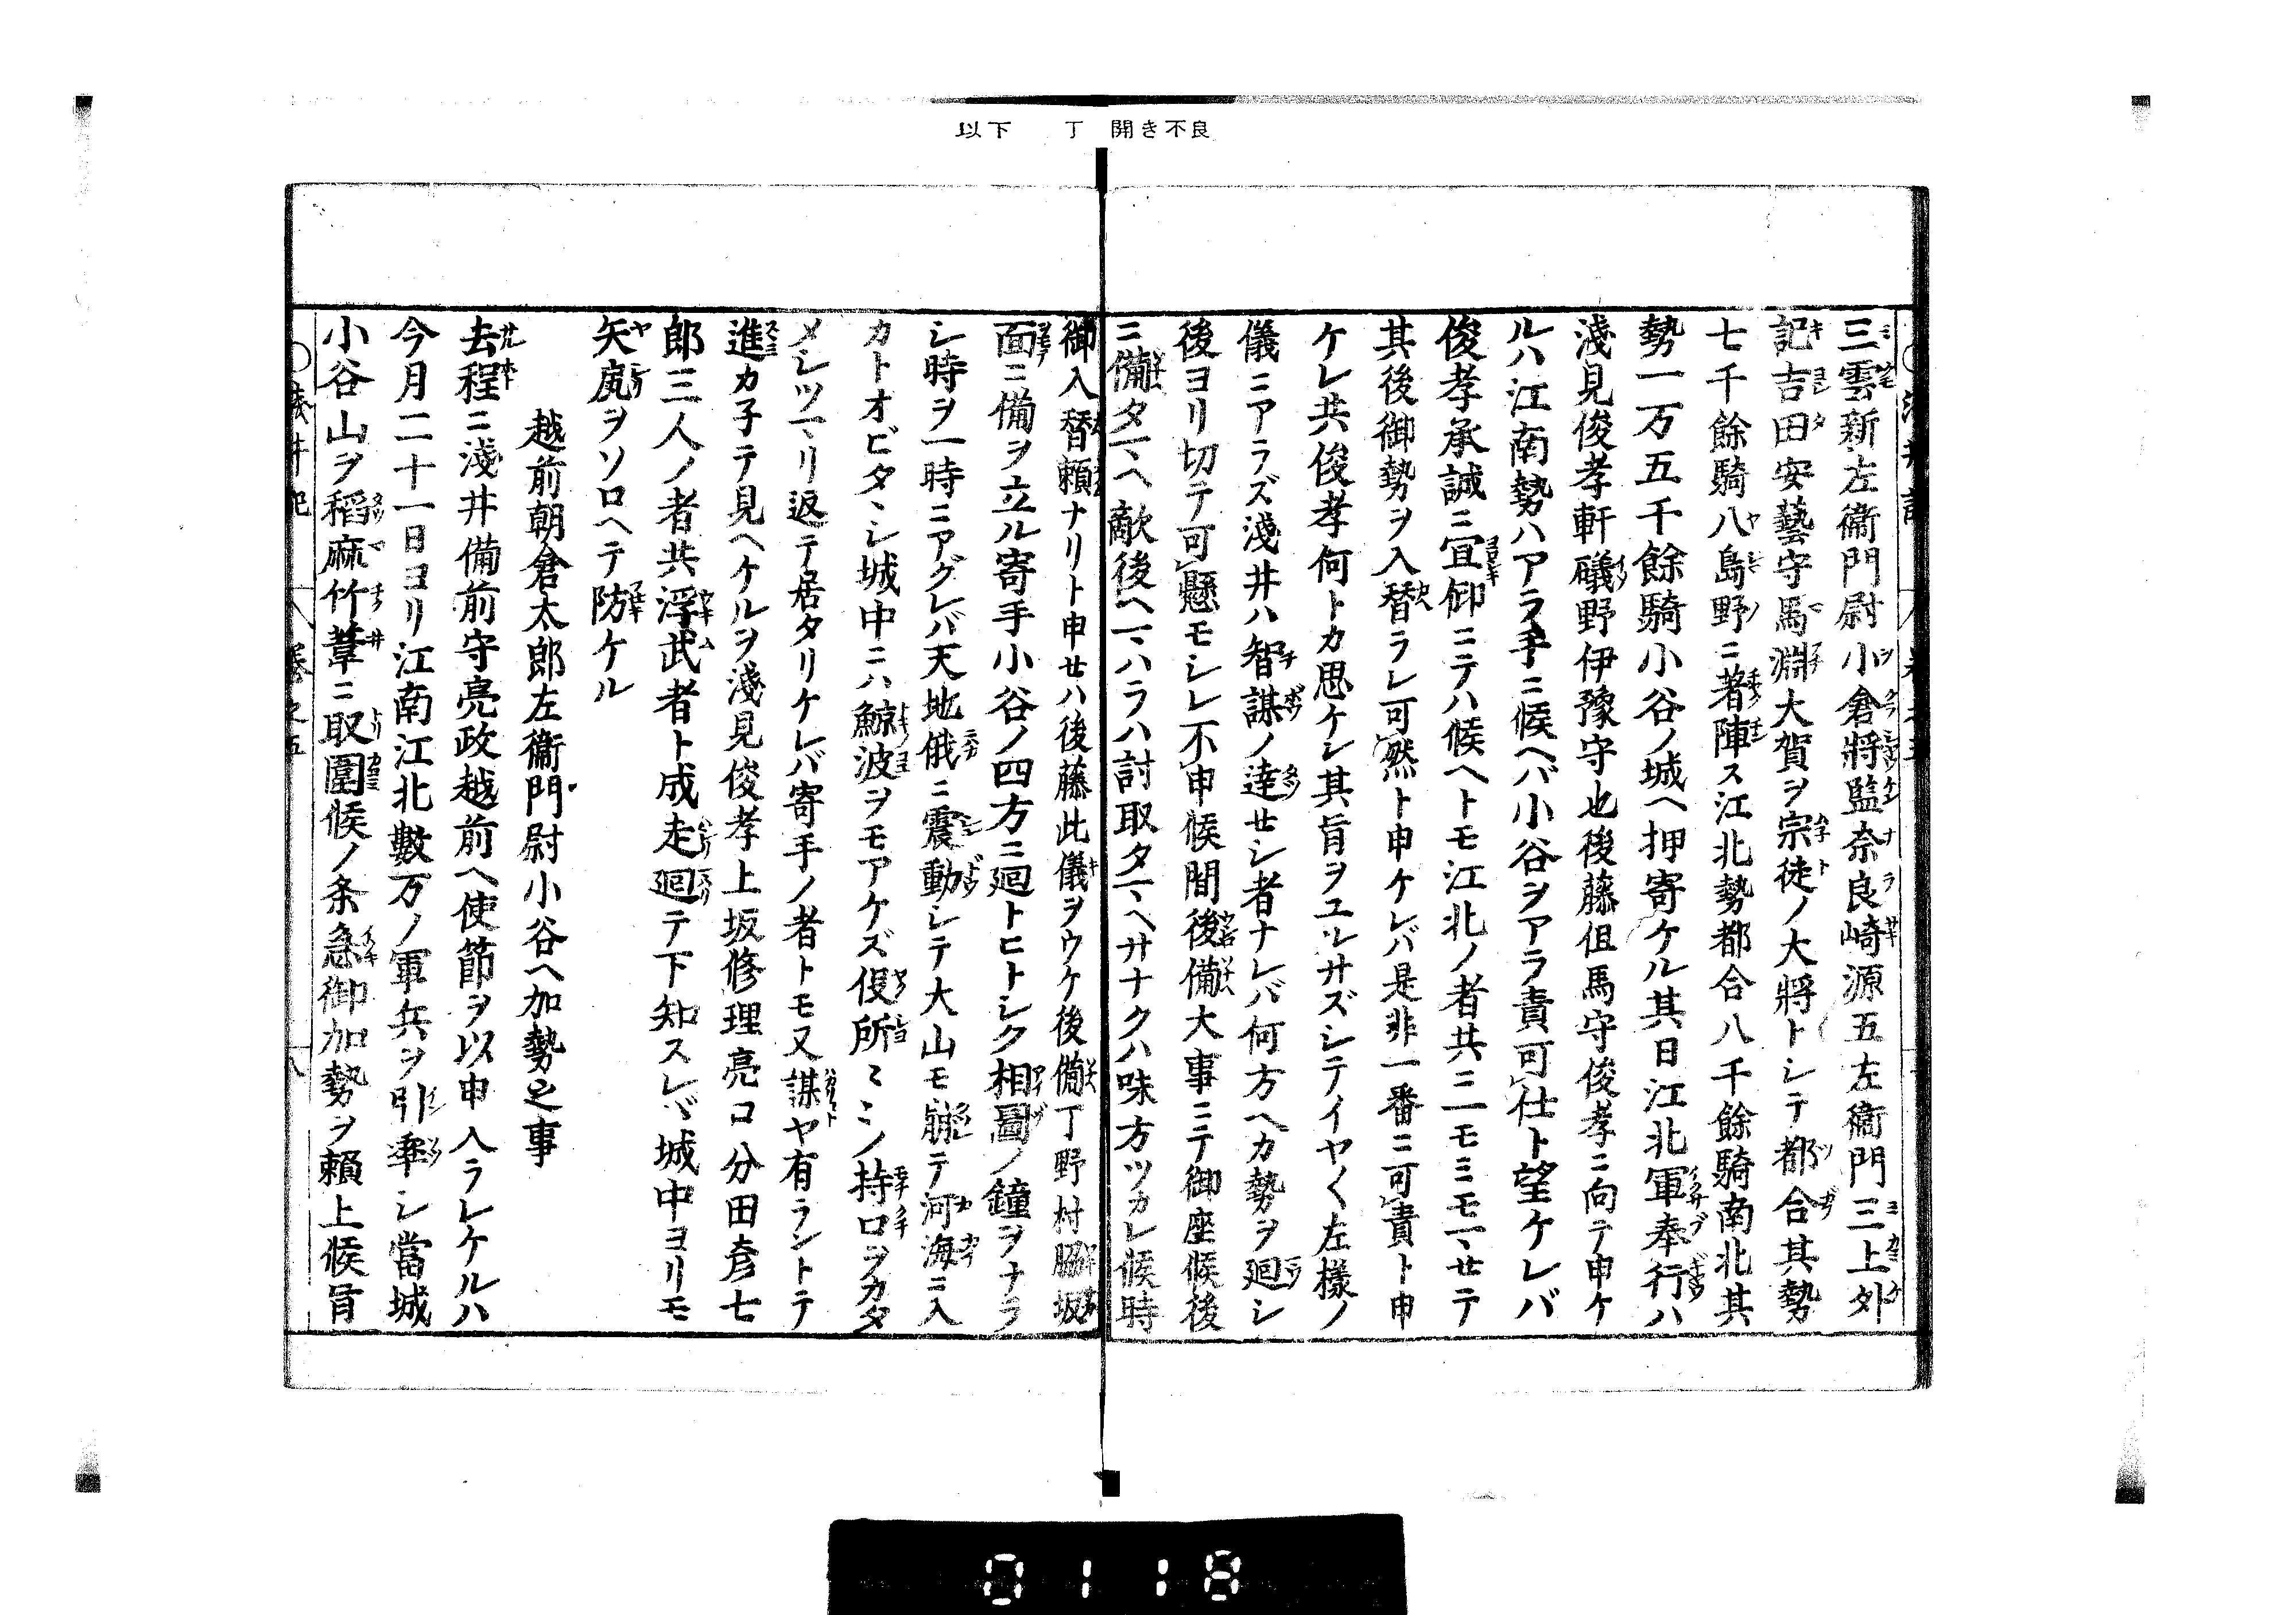 以下　丁　開き不良
三雲新左衞門尉小倉將監奈良崎源五左衞門三上外
記吉田安藝守馬淵大賀ヲ宗徒ノ大將トシテ都合其勢
七千餘騎八島野ニ著陣ス江北勢都合八千餘騎南北其
勢一万五千餘騎小谷ノ城ヘ押寄ケル其日江北軍奉行ハ
淺見俊孝軒礒野伊豫守也後藤但馬守俊孝ニ向テ申ケ
ルハ江南勢ハアラ手ニ候ヘバ小谷ヲアラ責可仕ト望ケレバ
俊孝承誠ニ宜仰ニテハ候ヘトモ江北ノ者共ニ一モミモマセテ
其後御勢ヲ入替ラレ可然ト申ケレバ是非一番ニ可責ト申
ケレ共俊孝何トカ思ケン其旨ヲユルサズシテイヤ〱左樣ノ
儀ニアラズ淺井ハ智謀ノ達セシ者ナレバ何方ヘカ勢ヲ廻シ
後ヨリ切テ可懸モシレ不申候間後備大事ニテ御座候後
ニ備タマヘ敵後ヘマハラハ討取タマヘサナクハ味方ツカレ候時
御入替頼ナリト申セハ後藤此儀ヲウケ後備丁野村脇坂
面ニ備ヲ立ル寄手小谷ノ四方ニ廻トヒトシク相圖ノ鐘ヲナラ
シ時ヲ一時ニアグレバ天地俄ニ震動シテ大山モ崩テ河海ニ入
カトオビタヽシ城中ニハ鯨波ヲモアケズ役所〻ミノ持口ヲカタ
メシツマリ返テ居タリケレバ寄手ノ者トモ又謀ヤ有ラントテ
進カ子テ見ヘケルヲ淺見俊孝上坂修理亮口分田彦七
郎三人ノ者共浮武者ト成走廻テ下知スレバ城中ヨリモ
矢嵐ヲソロヘテ防ケル
越前朝倉太郎左衞門尉小谷ヘ加勢之事
去程ニ淺井備前守亮政越前ヘ使節ヲ以申入ラレケルハ
今月二十一日ヨリ江南江北數万ノ軍兵ヲ引率シ當城
小谷山ヲ稻麻竹葦ニ取圍候ノ条急御加勢ヲ頼上候旨
0118